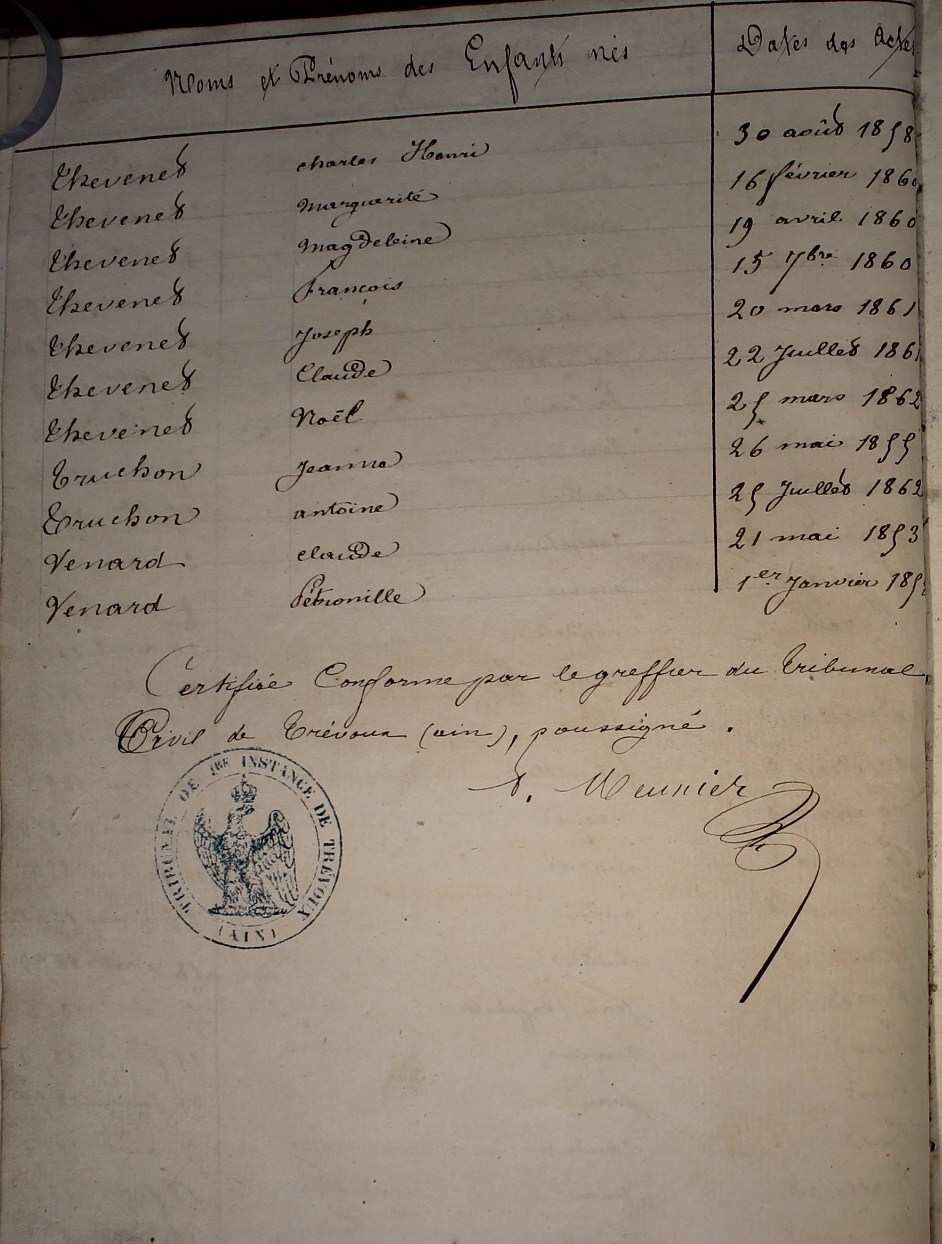 Noms et Prénoms des Enfants nés Dates des Actes
Thevenet Charles Henri 30 août 1858
Thevenet Marguerite 16 février 1860
Thevenet Magdeleine 19 avril 1860
Thevenet François 15 7bre 1860
Thevenet Joseph 20 mars 1861
Thevenet Claude 22 Juillet 1861
Thevenet Noël 25 mars 1862
Truchon Jeanne 26 mai 1855
Truchon antoine 25 Juillet 1862
Venard claude 21 mai 1853
Venard Pétronille 1er Janvier
Certifiée Conforme par le greffier du tribunal
Civil de trévoux (ain), soussigné.
Meunier
TRIBUNAL DE 1RE INSTANCE DE TRÉVOUX
(AIN)